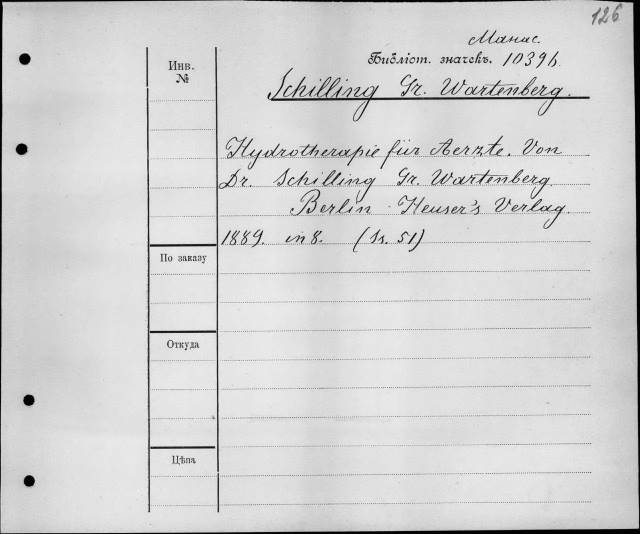 126
Манас.
Библіот. значекъ. 10396.
Инв.
№
Schilling Gr. Wartenberg.
Hydrotherapie für Aerzte. Von
Dr. Schilling Gr. Wartenberg.
Berlin Heuser's Verlag.
1889. in 8. (Sr. 51)
По заказу
Откуда
Цѣна